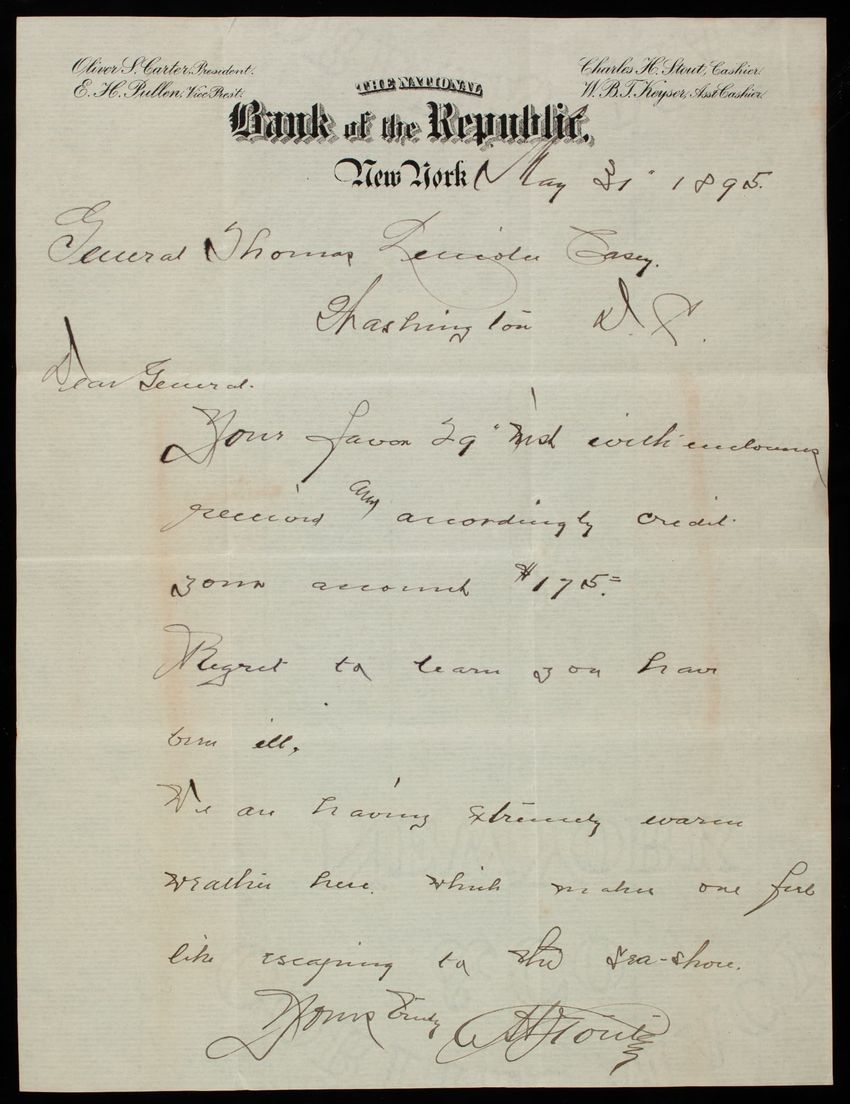 Oliver S. Carter, President.
E. H. Pullen, Vice Prest.
Charles H. Stout, Cashier.
W. B. T. Keyser, Asst Cashier.
THE NATIONAL
Bank of the Republic,
New York May 31" 1895.
General Thomas Lincoln Casey.
Washington D. C.
Dear General.
Your favor 29" inst with enclosures
received and accordingly credit
your account $175.=
Regret to learn you have
been ill.
We are having extremely warm
weather here. which makes one feel
like escaping to the sea-shore.
Yours truly C H Stout